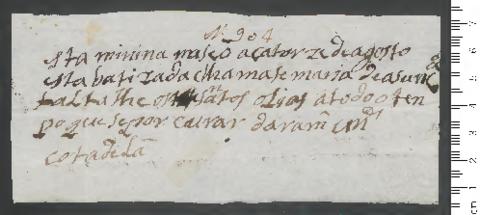 N. 904
esta minina naseo a cator ze de agosto
esta batizada chamase maria de asunc
falta lhe os santos olios a todo o ten
po que se por cairar daram
cota de lã